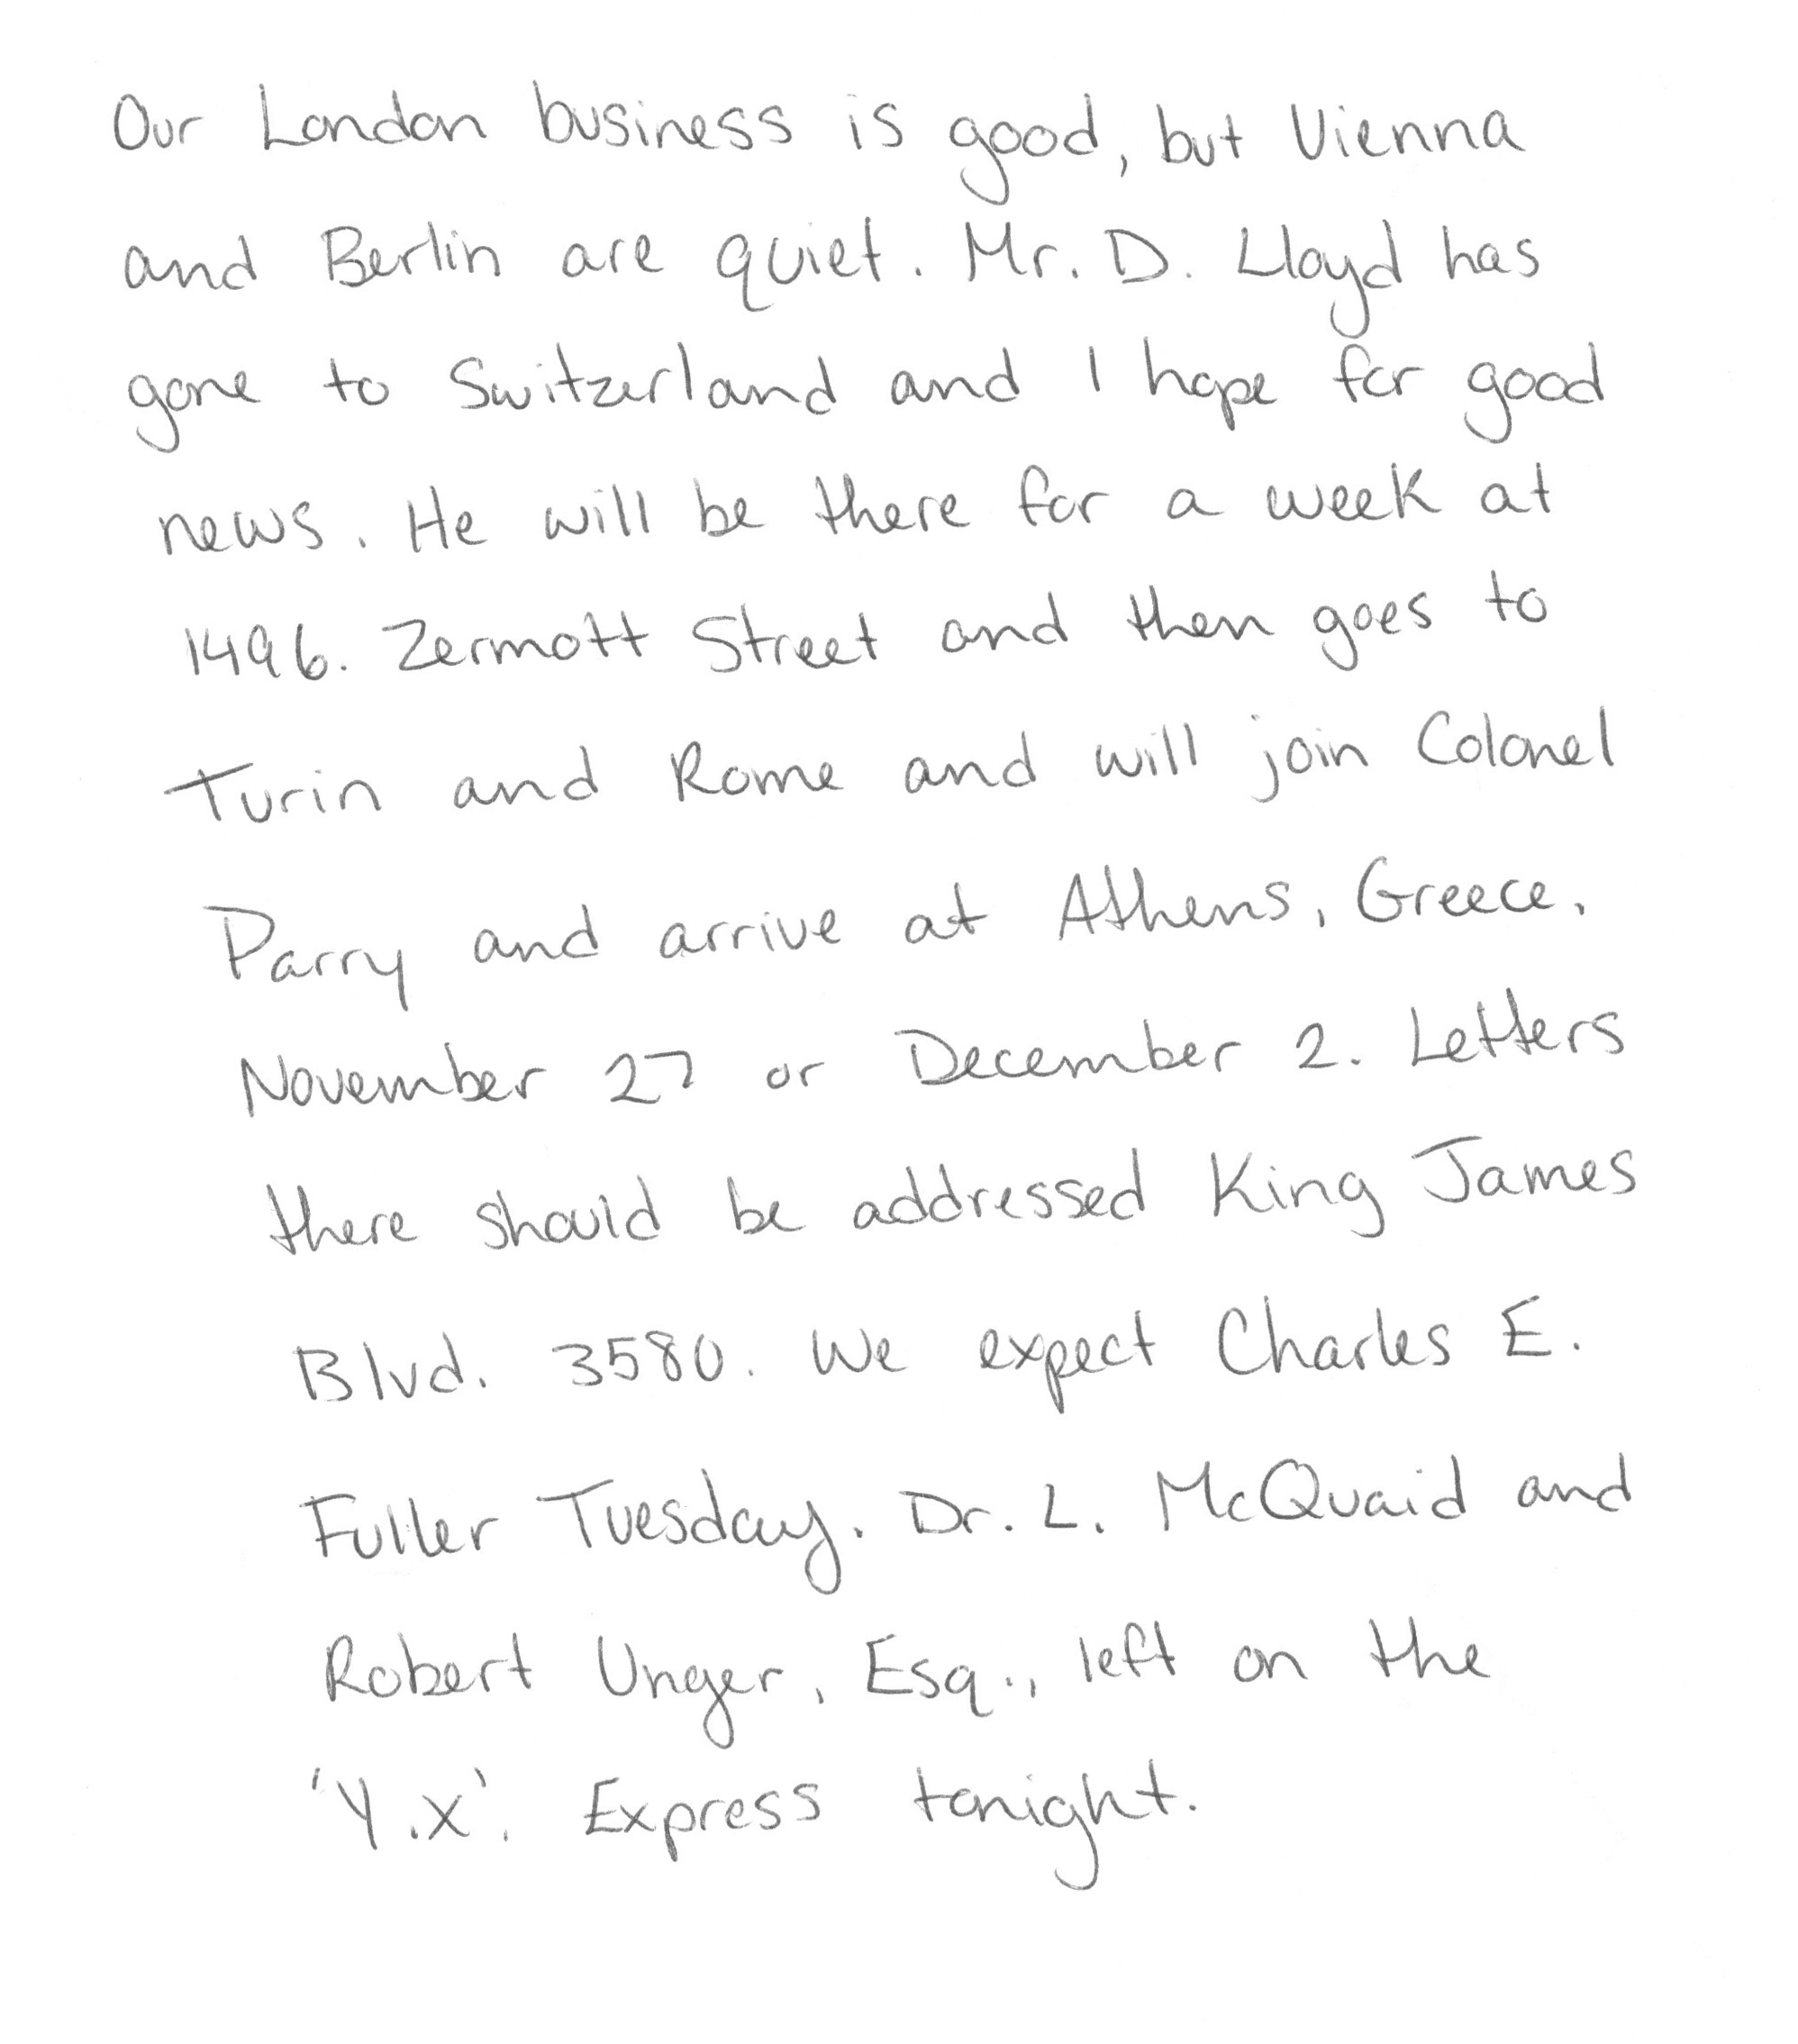 Our London business is good, but Vienna
and Berlin are quiet. Mr. D. Lloyd has
gone to Switzerland and I hope for good
news. He will be there for a week at
1496. Zermott Street and then goes to
Turin and Rome and will join Colonel
Parry and arrive at Athens, Greece,
November 27 or December 2. Letters
there should be addressed King James
Blvd. 3580. We expect Charles E.
Fuller Tuesday. Dr. L. McQuaid and
Robert Unger, Esq., left on the
'Y.X'. Express tonight.